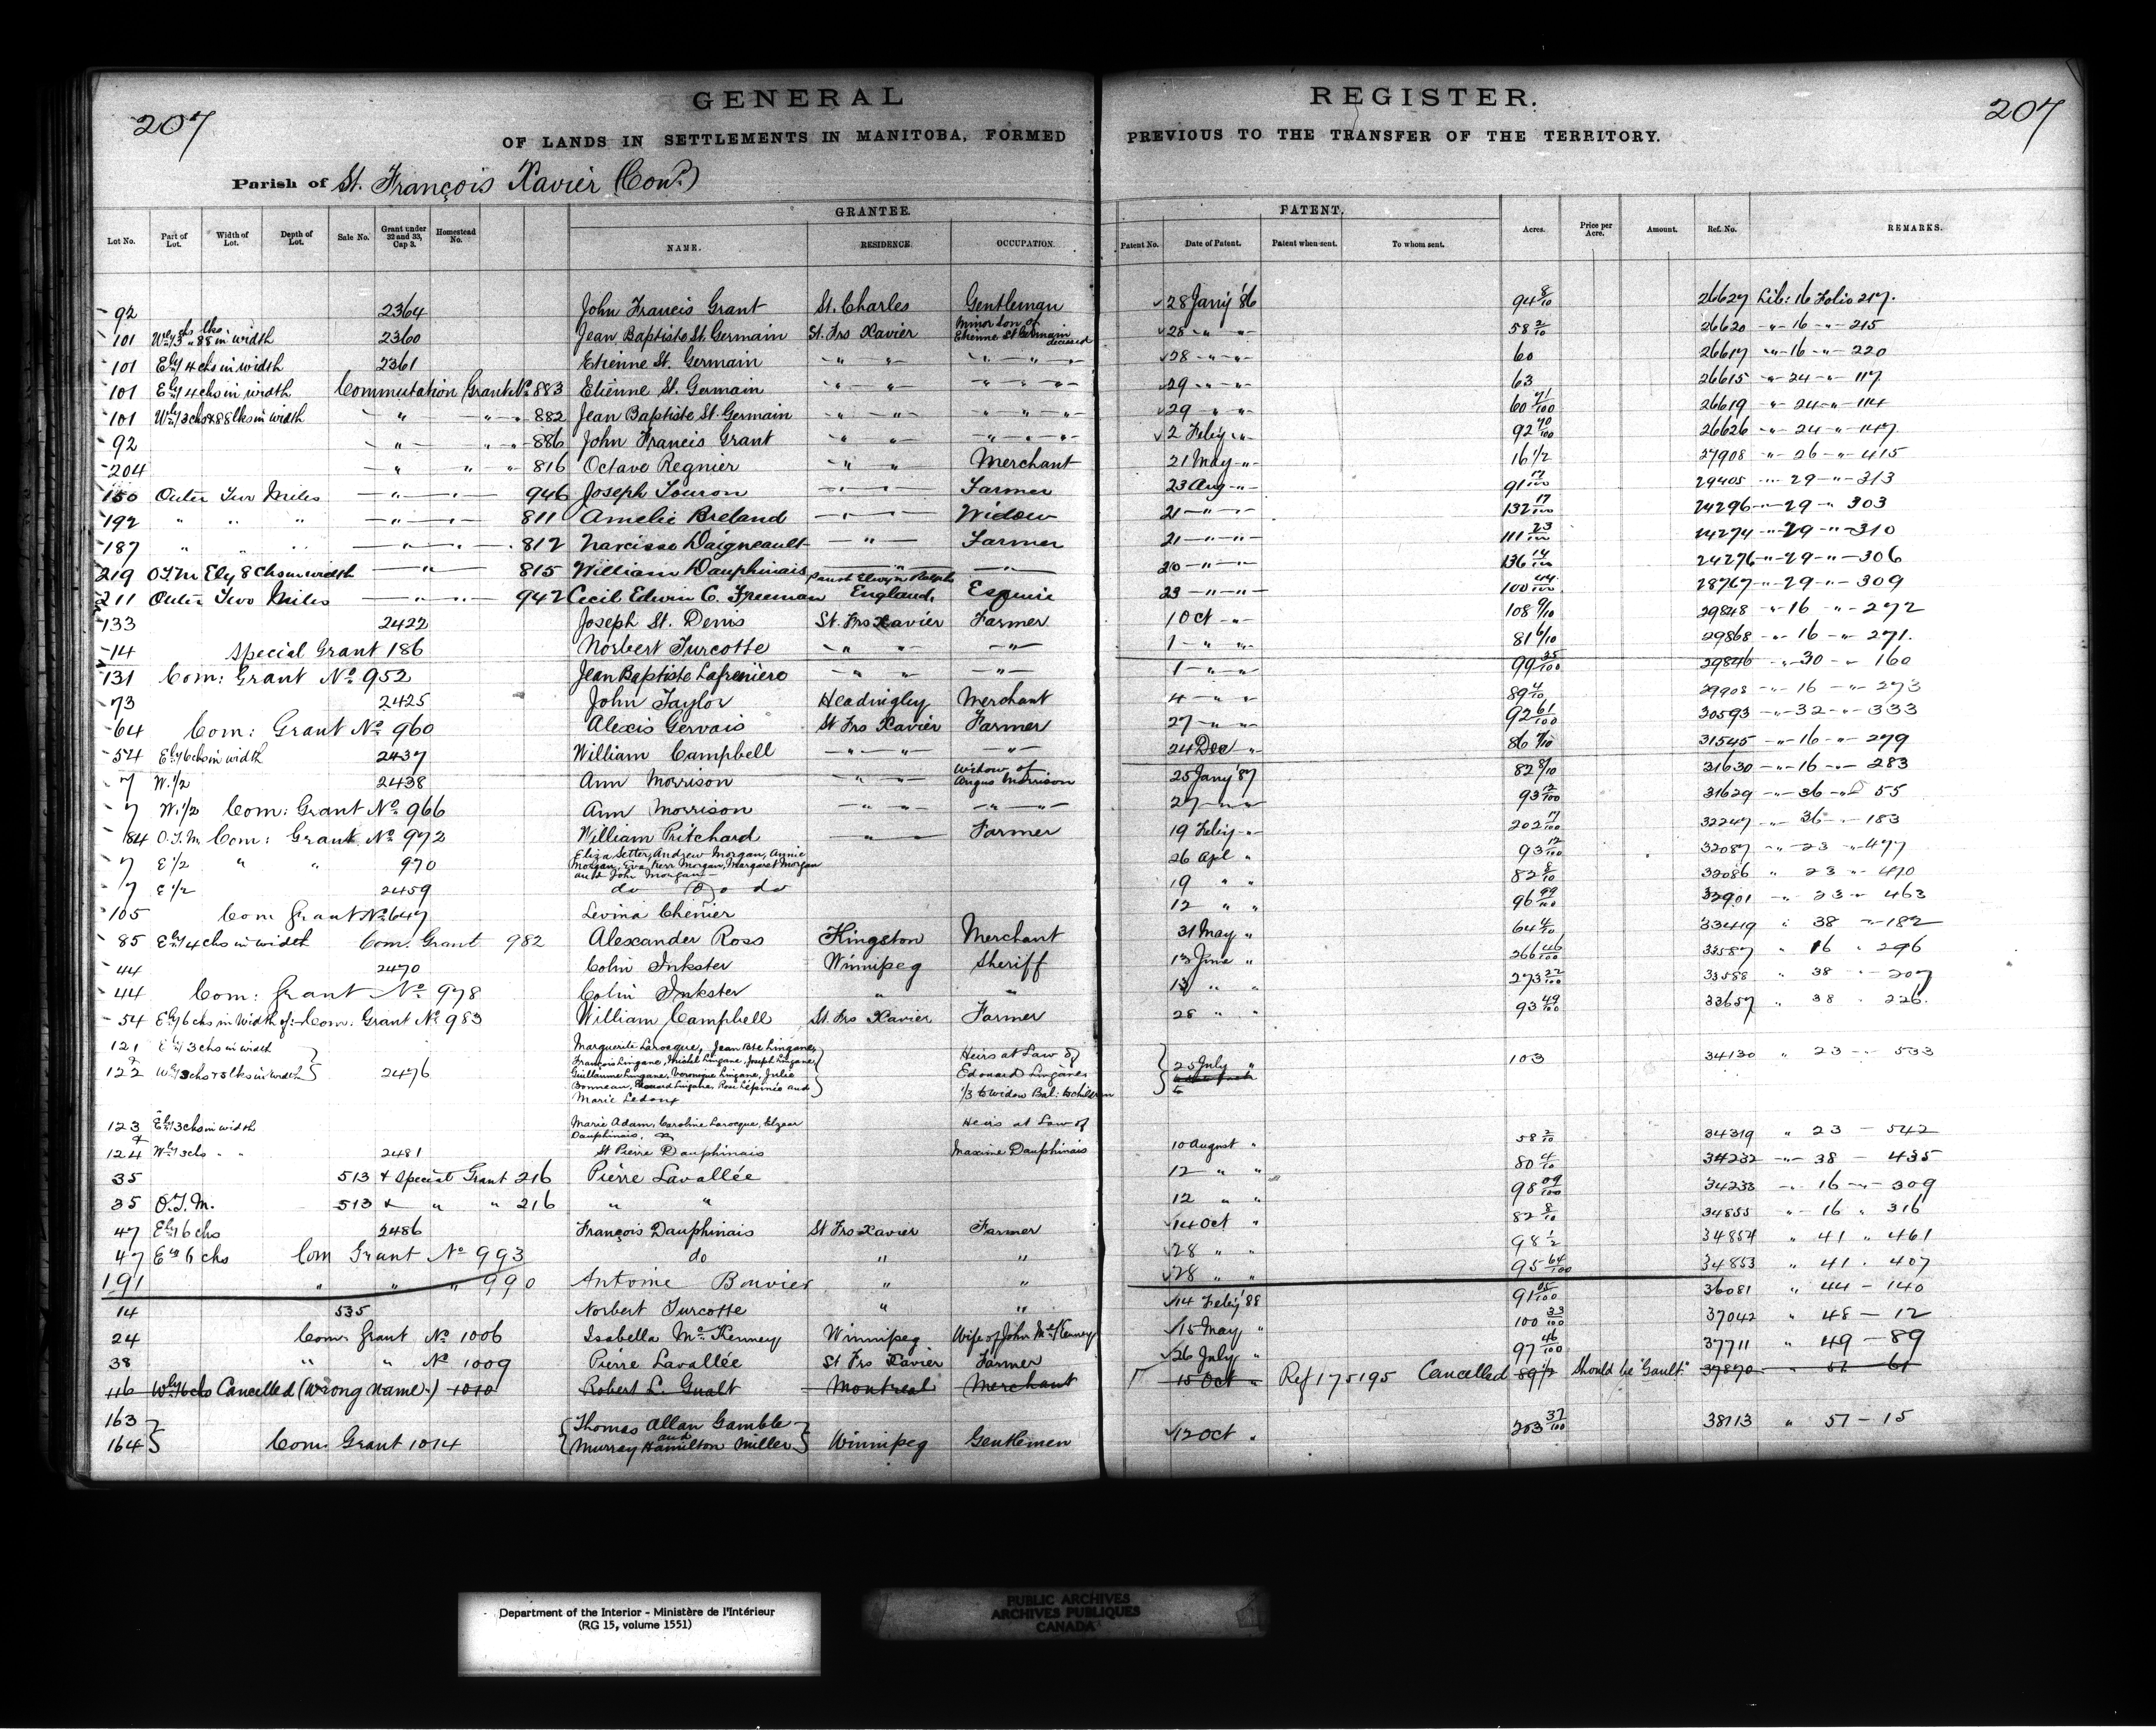 207
GENERAL REGISTER.
207
OF LANDS IN SETTLEMENTS IN MANITOBA, FORMED PREVIOUS TO THE TRANSFER OF THE TERRITORY.
Parish of St. François Xavier (Con.)
GRANTEE. PATENT.
Lot No. Part of Lot. Width of Lot. Depth of Lot. Sale No. Grant under 32 and 33, Cap 3. Homestead No. NAME. RESIDENCE. OCCUPATION. Patent No. Date of Patent. Patent when sent. To whom sent. Acres. Price per Acre. Amount. Ref. No. REMARKS.
92 2364 John Francis Grant St. Charles Gentleman 28 Jany '86 94 8/10 26627 Lib: 16 Folio 217.
101 Wly 3 chs 88 lks in width 2360 Jean Baptiste St. Germain St. Frs Xavier Minor son of Etienne St Germain deceased 28 " " 58 2/10 26620 " 16 " 215
101 Ely 4 chs in width 2361 Etienne St. Germain " " " " " 28 " " 60 26617 " 16 " 220
101 Ely 4 chs in width Commutation Grant No 883 Etienne St. Germain " " " " " 29 " " 63 26615 " 24 " 117
101 Wly 3 chs & 88 lks in width " " " 882 Jean Baptiste St. Germain " " " " " 29 " " 60 71/100 26619 " 24 " 114
92 " " " 886 John Francis Grant " " " " " 2 Feby " 92 70/100 26626 " 24 " 147
204 " " " 816 Octave Regnier " " Merchant 21 May " 16 1/2 27908 " 26 " 415
150 Outer Two Miles " " 946 Joseph Touron " " Farmer 23 Aug " 91 17/100 29405 " 29 " 313
192 " " " " " 811 Amelie Breland " " Widow 21 " " 132 17/100 24296 " 29 " 303
187 " " " " " 812 Narcisse Daigneault " Farmer 21 " " 111 23/100 24274 " 29 " 310
219 O.T.M. Ely 8 Chs in width " 815 William Dauphinais " " 20 " " 136 14/100 24276 " 29 " 306
211 Outer Two Miles " " 942 Cecil Edwin C. Freeman England, Esquire 23 " " 100 44/100 28767 " 29 " 309
133 2422 Joseph St. Denis St. Frs Xavier Farmer 1 Oct " 108 9/10 29848 " 16 " 272
14 Special Grant 186 Norbert Turcotte " " " 1 " " 81 6/10 29868 " 16 " 271.
131 Com: Grant No 952 Jean Baptiste Lafrenière " " " 1 " " 99 35/100 29846 " 30 " 160
73 2425 John Taylor Headingley Merchant 4 " " 89 4/10 29908 " 16 " 273
64 Com: Grant No 960 Alexis Gervais St Frs Xavier Farmer 27 " " 92 61/100 30593 " 32 " 333
54 Ely 6 chs in width 2437 William Campbell " " " 24 Dec " 86 9/10 31545 " 16 " 279
7 W. 1/2 2438 Ann Morrison " " Widow of Angus Morrison 25 Jany '87 82 8/10 31630 " 16 " 283
7 W. 1/2 Com: Grant No 966 Ann Morrison " " " " 27 " " 93 12/100 31629 " 36 " 55
84 O.T.M. Com: Grant No 972 William Pritchard " Farmer 19 Feby " 202 17/100 32247 " 36 " 183
7 E 1/2 " " 970 Eliza Setter, Andrew Morgan, Annie Morgan, Eva Kerr Morgan, Margaret Morgan and John Morgan 26 Apl " 93 12/100 32087 " 23 " 477
7 E 1/2 2459 do do do 19 " " 82 8/10 32086 " 23 " 470
105 Com Grant No 647 Levina Chenier 12 " " 96 99/100 32901 " 23 " 463
85 Ely 4 chs in width Com. Grant 982 Alexander Ross Kingston Merchant 31 May " 64 4/10 33419 " 38 " 182
44 2470 Colin Inkster Winnipeg Sheriff 13 June " 266 46/100 33587 " 16 " 296
44 Com: Grant No 978 Colin Inkster " " 13 " " 273 22/100 33588 " 38 " 207
54 Ely 6 chs in Width of: Com: Grant No 983 William Campbell St. Frs Xavier Farmer 28 " " 93 49/100 33657 " 38 " 226.
121 Ely 3 chs in width Marguerite Larocque, Jean Bte Lingane,
& François Lingane, Michel Lingane, Joseph Lingane, Heirs at Law of
122 Wly 3 chs & 5 lks in width 2476 Guillaume Lingane, Veronique Lingane, Julie Edouard Lingane 25 July " 103 34130 " 23 " 533
Bonneau, Edouard Lingane, Rose Lépinée and 1/3 to Widow Bal: to children
Marie Ledoux
123 Ely 3 chs in width Marie Adam, Caroline Larocque, Elzear Heirs at Law of
& Dauphinais,
124 Wly 3 chs " " 2481 St Pierre Dauphinais Maxime Dauphinais 10 August " 58 2/10 34319 " 23 " 542
35 513 & Special Grant 216 Pierre Lavallée 12 " " 80 4/10 34232 " 38 " 435
35 O.T.M. 513 & " " 216 " " 12 " " 98 09/100 34233 " 16 " 309
47 Ely 6 chs 2486 François Dauphinais St Frs Xavier Farmer 14 Oct " 82 8/10 34855 " 16 " 316
47 Ely 6 chs Com Grant No 993 do " " 28 " " 98 1/2 34854 " 41 " 461
191 " " " 990 Antoine Bouvier " " 28 " " 95 64/100 34853 " 41 . 407
14 535 Norbert Turcotte " " 14 Feby '88 91 05/100 36081 " 44 - 140
24 Com: Grant No 1006 Isabella McKenney Winnipeg Wife of John McKenney 15 May " 100 33/100 37042 " 48 - 12
38 " " No 1009 Pierre Lavallée St Frs Xavier Farmer 26 July " 97 46/100 37711 " 49 - 89
116 Wly 6 chs Cancelled (Wrong Name.) 1010 Robert L. Gualt Montreal Merchant 15 Oct " Ref 175195 Cancelled 89 1/2 Should be "Gault" 37870 " 51 61
163 Thomas Allan Gamble
164 Com. Grant 1014 and Murray Hamilton Miller Winnipeg Gentlemen 12 Oct " 203 37/100 38113 " 51 - 15
Department of the Interior - Ministère de l'Intérieur
(RG 15, volume 1551)
PUBLIC ARCHIVES
ARCHIVES PUBLIQUES
CANADA